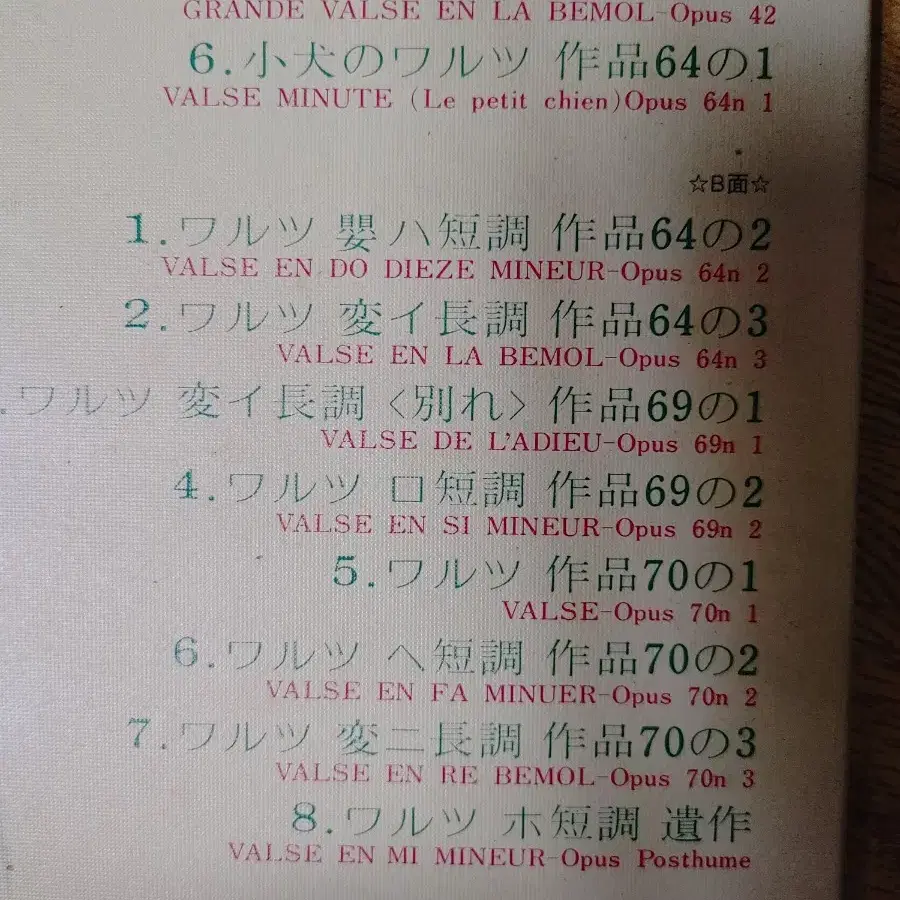 GRANDE VALSE EN LA BEMOL-Opus 42
6.小犬のワルツ 作品64の1
VALSE MINUTE (Le petit chien)Opus 64n 1
☆B面☆
1.ワルツ 嬰ハ短調 作品64の2
VALSE EN DO DIEZE MINEUR-Opus 64n 2
2.ワルツ 変イ長調 作品64の3
VALSE EN LA BEMOL-Opus 64n 3
.ワルツ 変イ長調〈別れ〉作品69の1
VALSE DE L'ADIEU-Opus 69n 1
4.ワルツ ロ短調 作品69の2
VALSE EN SI MINEUR-Opus 69n 2
5.ワルツ 作品70の1
VALSE-Opus 70n 1
6.ワルツ ヘ短調 作品70の2
VALSE EN FA MINUER-Opus 70n 2
7.ワルツ 変ニ長調 作品70の3
VALSE EN RE BEMOL-Opus 70n 3
8.ワルツ ホ短調 遺作
VALSE EN MI MINEUR-Opus Posthume